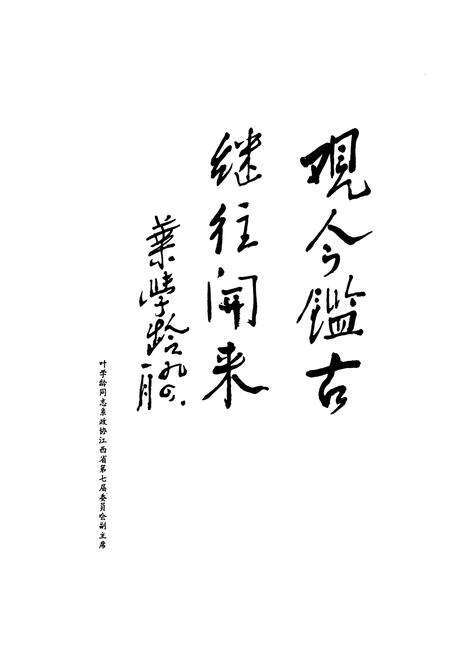 观今鑑古
继往开来
葉学龄 九四.
一月
叶学龄同志系政协江西省第七届委员会副主席